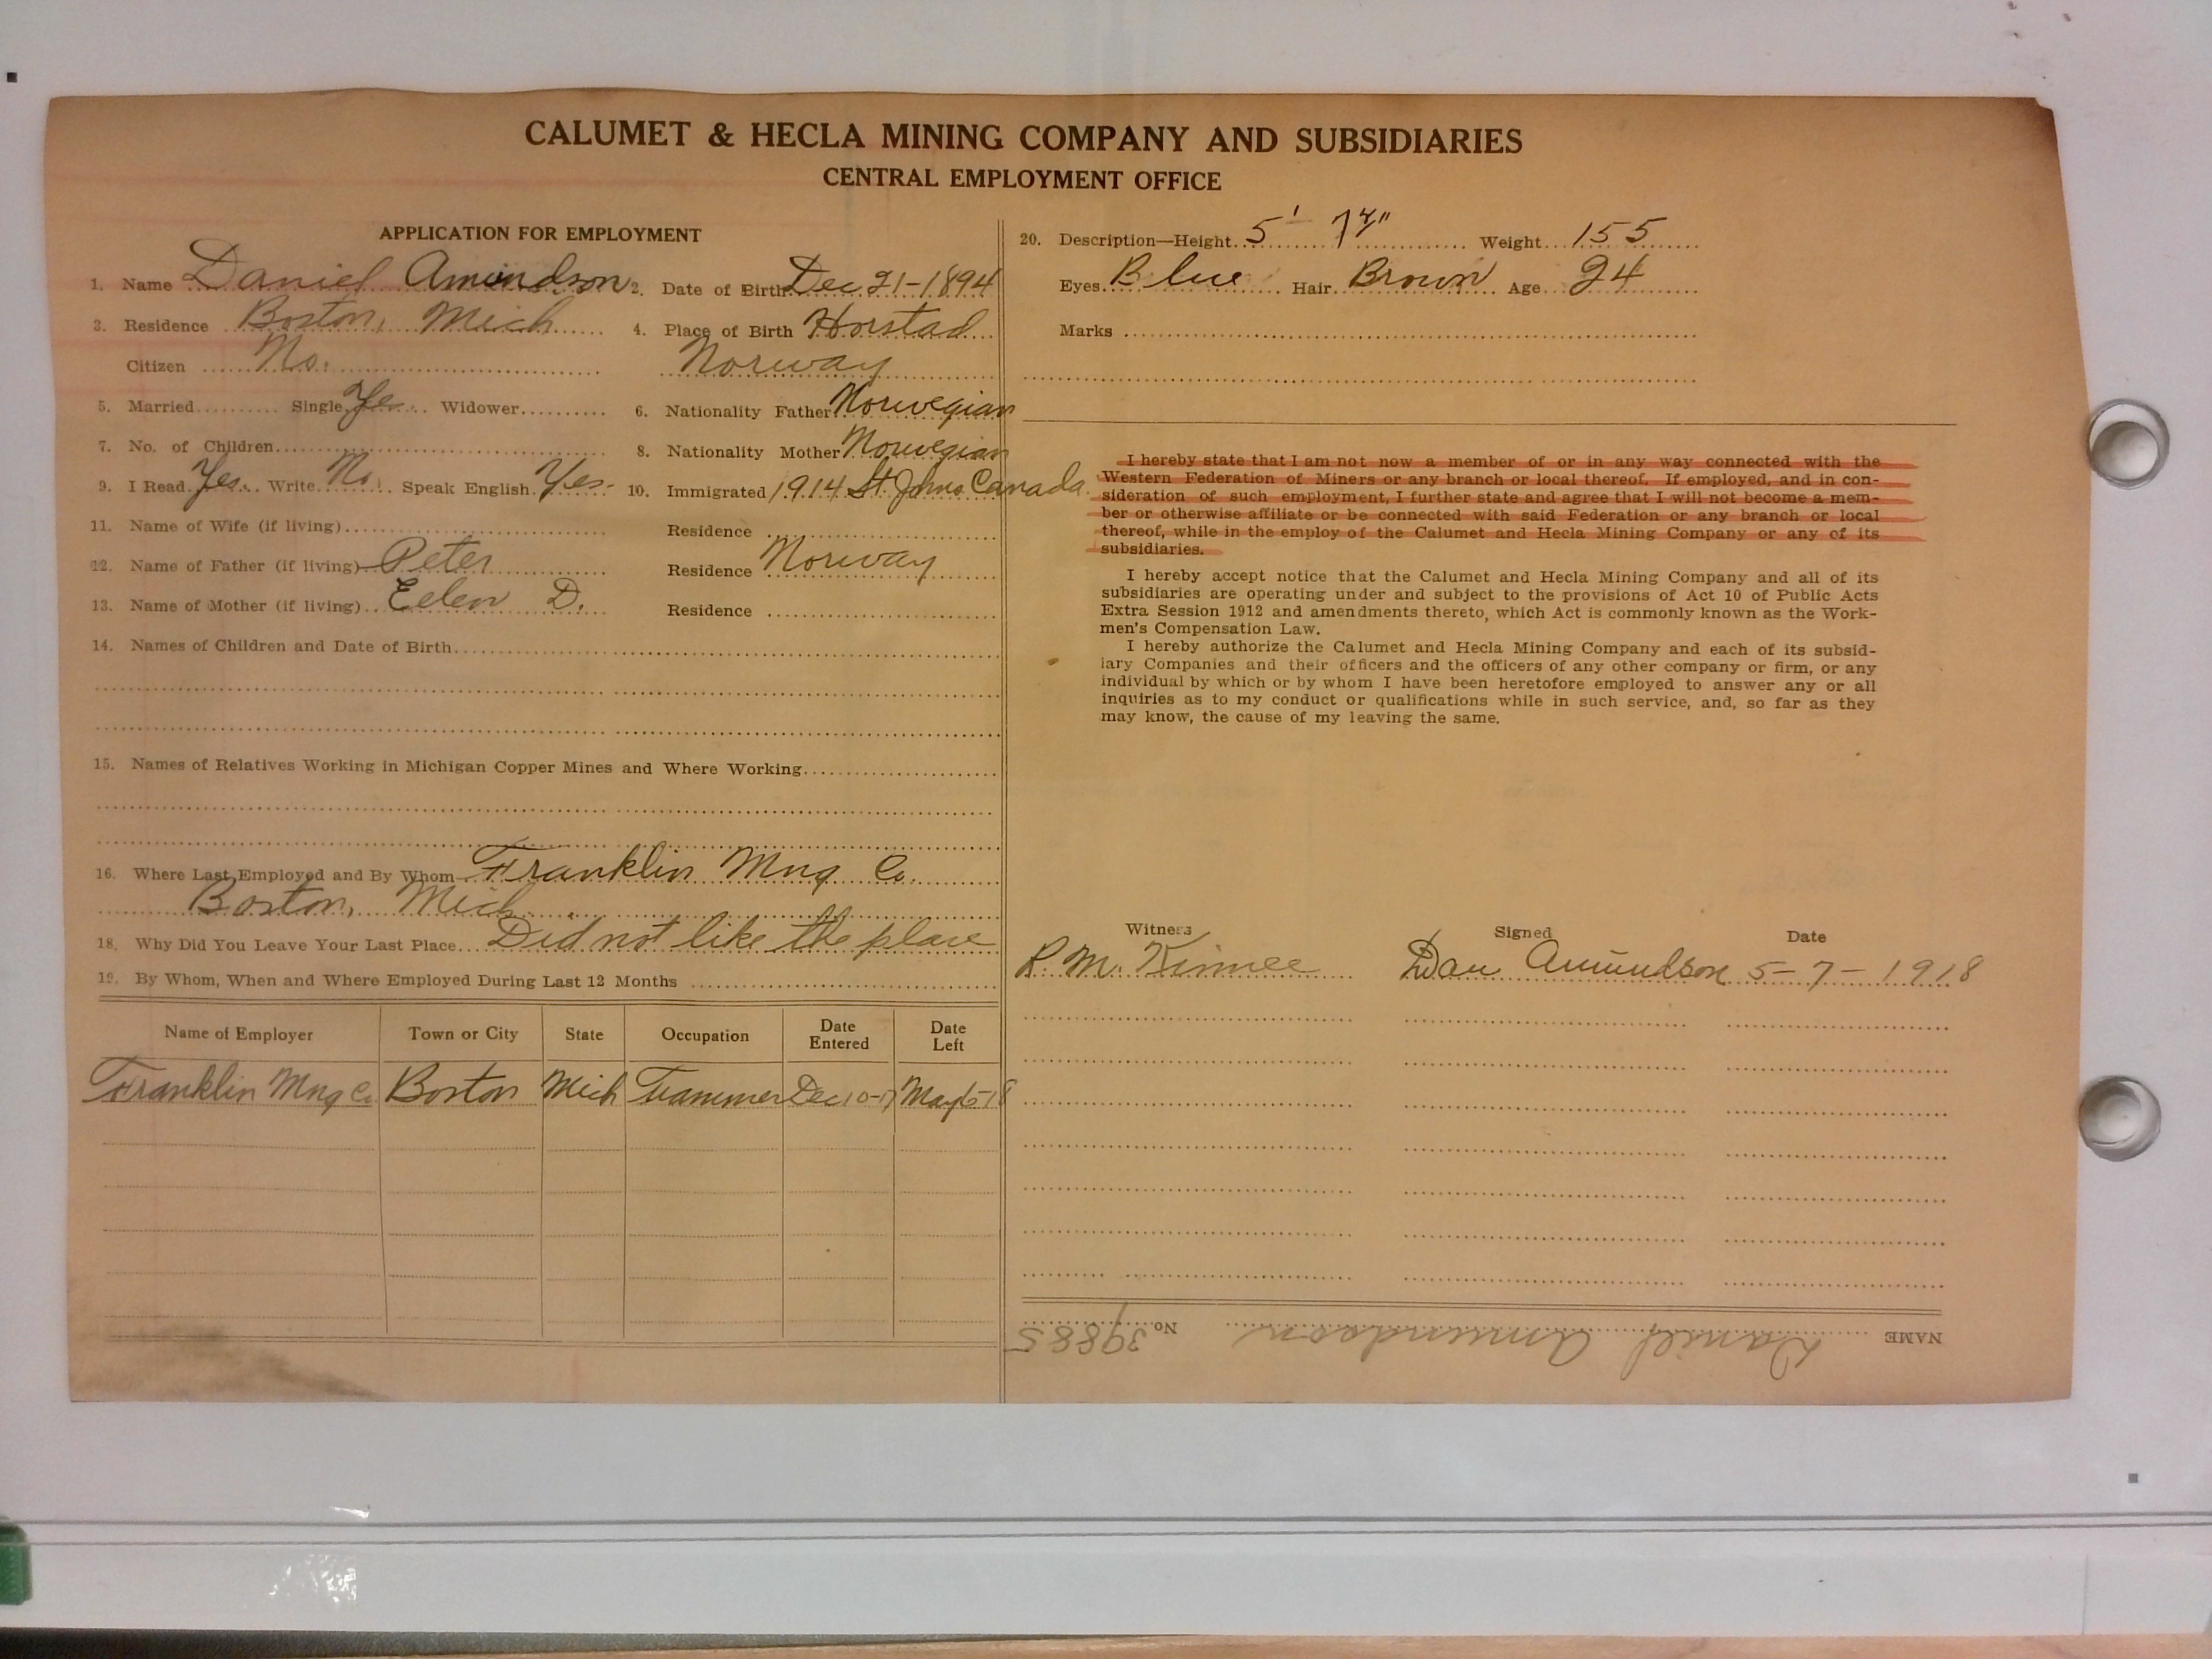 CALUMET & HECLA MINING COMPANY AND SUBSIDIARIES
CENTRAL EMPLOYMENT OFFICE
APPLICATION FOR EMPLOYMENT
1. Name Daniel Amundson 2. Date of Birth Dec 21-1894
3. Residence Boston, Mich 4. Place of Birth Horstad
Citizen No. Norway
5. Married Single Yes Widower 6. Nationality Father Norwegian
7. No. of Children 8. Nationality Mother Norwegian
9. I Read Yes Write No. Speak English Yes. 10. Immigrated 1914 St Johns Canada.
11. Name of Wife (if living) Residence
12. Name of Father (if living) Peter Residence Norway
13. Name of Mother (if living) D. Residence
14. Names of Children and Date of Birth
15. Names of Relatives Working in Michigan Copper Mines and Where Working
16. Where Last Employed and By Whom Franklin Mng Co.
Boston, Mich.
18. Why Did You Leave Your Last Place Did not like the place
19. By Whom, When and Where Employed During Last 12 Months
Name of Employer Town or City State Occupation Date Entered Date Left
Franklin Mng Co Boston Mich Trammer Dec 10-17 May 6-18
20. Description—Height 5' 7 Weight 155
Eyes Blue Hair Brown Age 24
Marks
I hereby state that I am not now a member of or in any way connected with the
Western Federation of Miners or any branch or local thereof. If employed, and in con-
sideration of such employment, I further state and agree that I will not become a mem-
ber or otherwise affiliate or be connected with said Federation or any branch or local
thereof, while in the employ of the Calumet and Hecla Mining Company or any of its
subsidiaries.
I hereby accept notice that the Calumet and Hecla Mining Company and all of its
subsidiaries are operating under and subject to the provisions of Act 10 of Public Acts
Extra Session 1912 and amendments thereto, which Act is commonly known as the Work-
men's Compensation Law.
I hereby authorize the Calumet and Hecla Mining Company and each of its subsid-
iary Companies and their officers and the officers of any other company or firm, or any
individual by which or by whom I have been heretofore employed to answer any or all
inquiries as to my conduct or qualifications while in such service, and, so far as they
may know, the cause of my leaving the same.
Witness Signed Date
R. M. Kinnee Dan Amundson 5-7-1918
NAME Daniel Amundson No. 39885